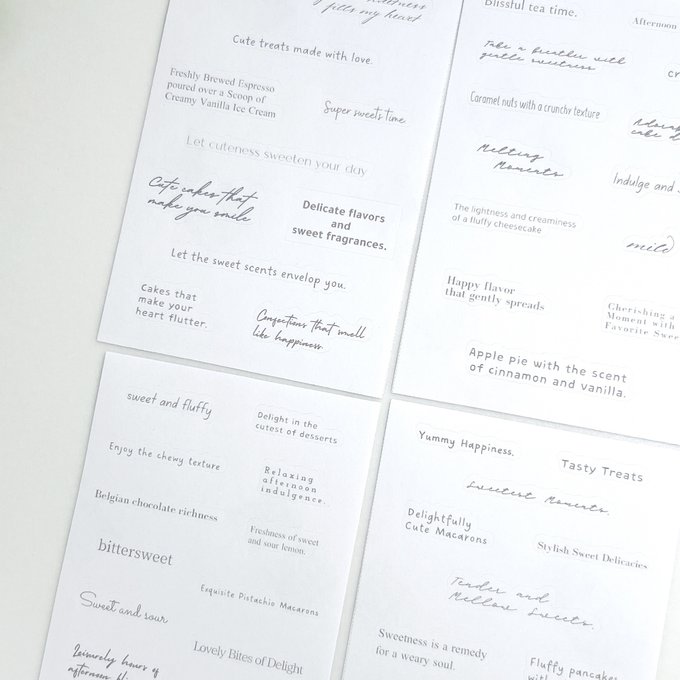 fills my heart
Cute treats made with love.
Freshly Brewed Espresso
poured over a Scoop of
Creamy Vanilla Ice Cream
Super sweets time
Let cuteness sweeten your day
Cute cakes that
make you smile
Delicate flavors
and
sweet fragrances.
Let the sweet scents envelop you.
Cakes that
make your
heart flutter.
Confections that smell
like happiness.
Blissful tea time.
Afternoon
Take a breather with
gentle sweetness
Caramel nuts with a crunchy texture
cake
Melting
Moments
Indulge and
The lightness and creaminess
of a fluffy cheesecake
mild
Happy flavor
that gently spreads
Cherishing a
Moment with
Favorite
Apple pie with the scent
of cinnamon and vanilla.
sweet and fluffy
Delight in the
cutest of desserts
Enjoy the chewy texture
Relaxing
afternoon
indulgence.
Belgian chocolate richness
Freshness of sweet
and sour lemon.
bittersweet
Exquisite Pistachio Macarons
Sweet and sour
Lovely Bites of Delight
Leisurely hours of
afternoon
Yummy Happiness.
Tasty Treats
Sweetest Moments.
Delightfully
Cute Macarons
Stylish Sweet Delicacies
Tender and
Mellow Sweets.
Sweetness is a remedy
for a weary soul.
Fluffy pancakes